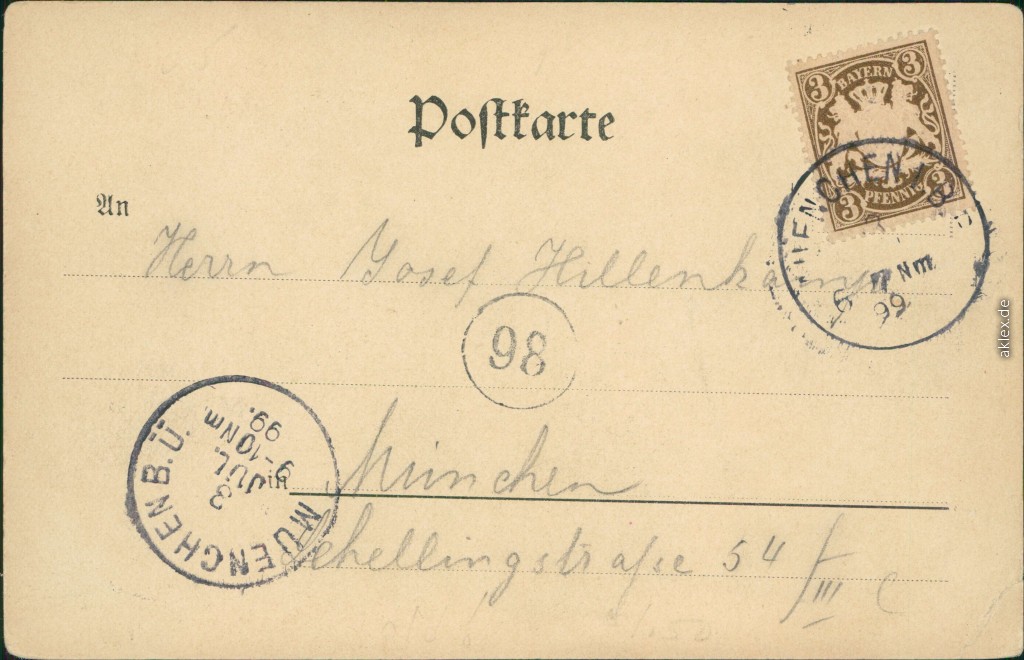 Postkarte
3 BAYERN 3
3 PFENNIG 3
MUENCHEN
Nm
99
An
Herrn Josef Hillenkamp
98
MUENCHEN B.Ü.
3
JUL.
9-10 Nm
99.
in München
Schellingstraſse 54/III
aklex.de